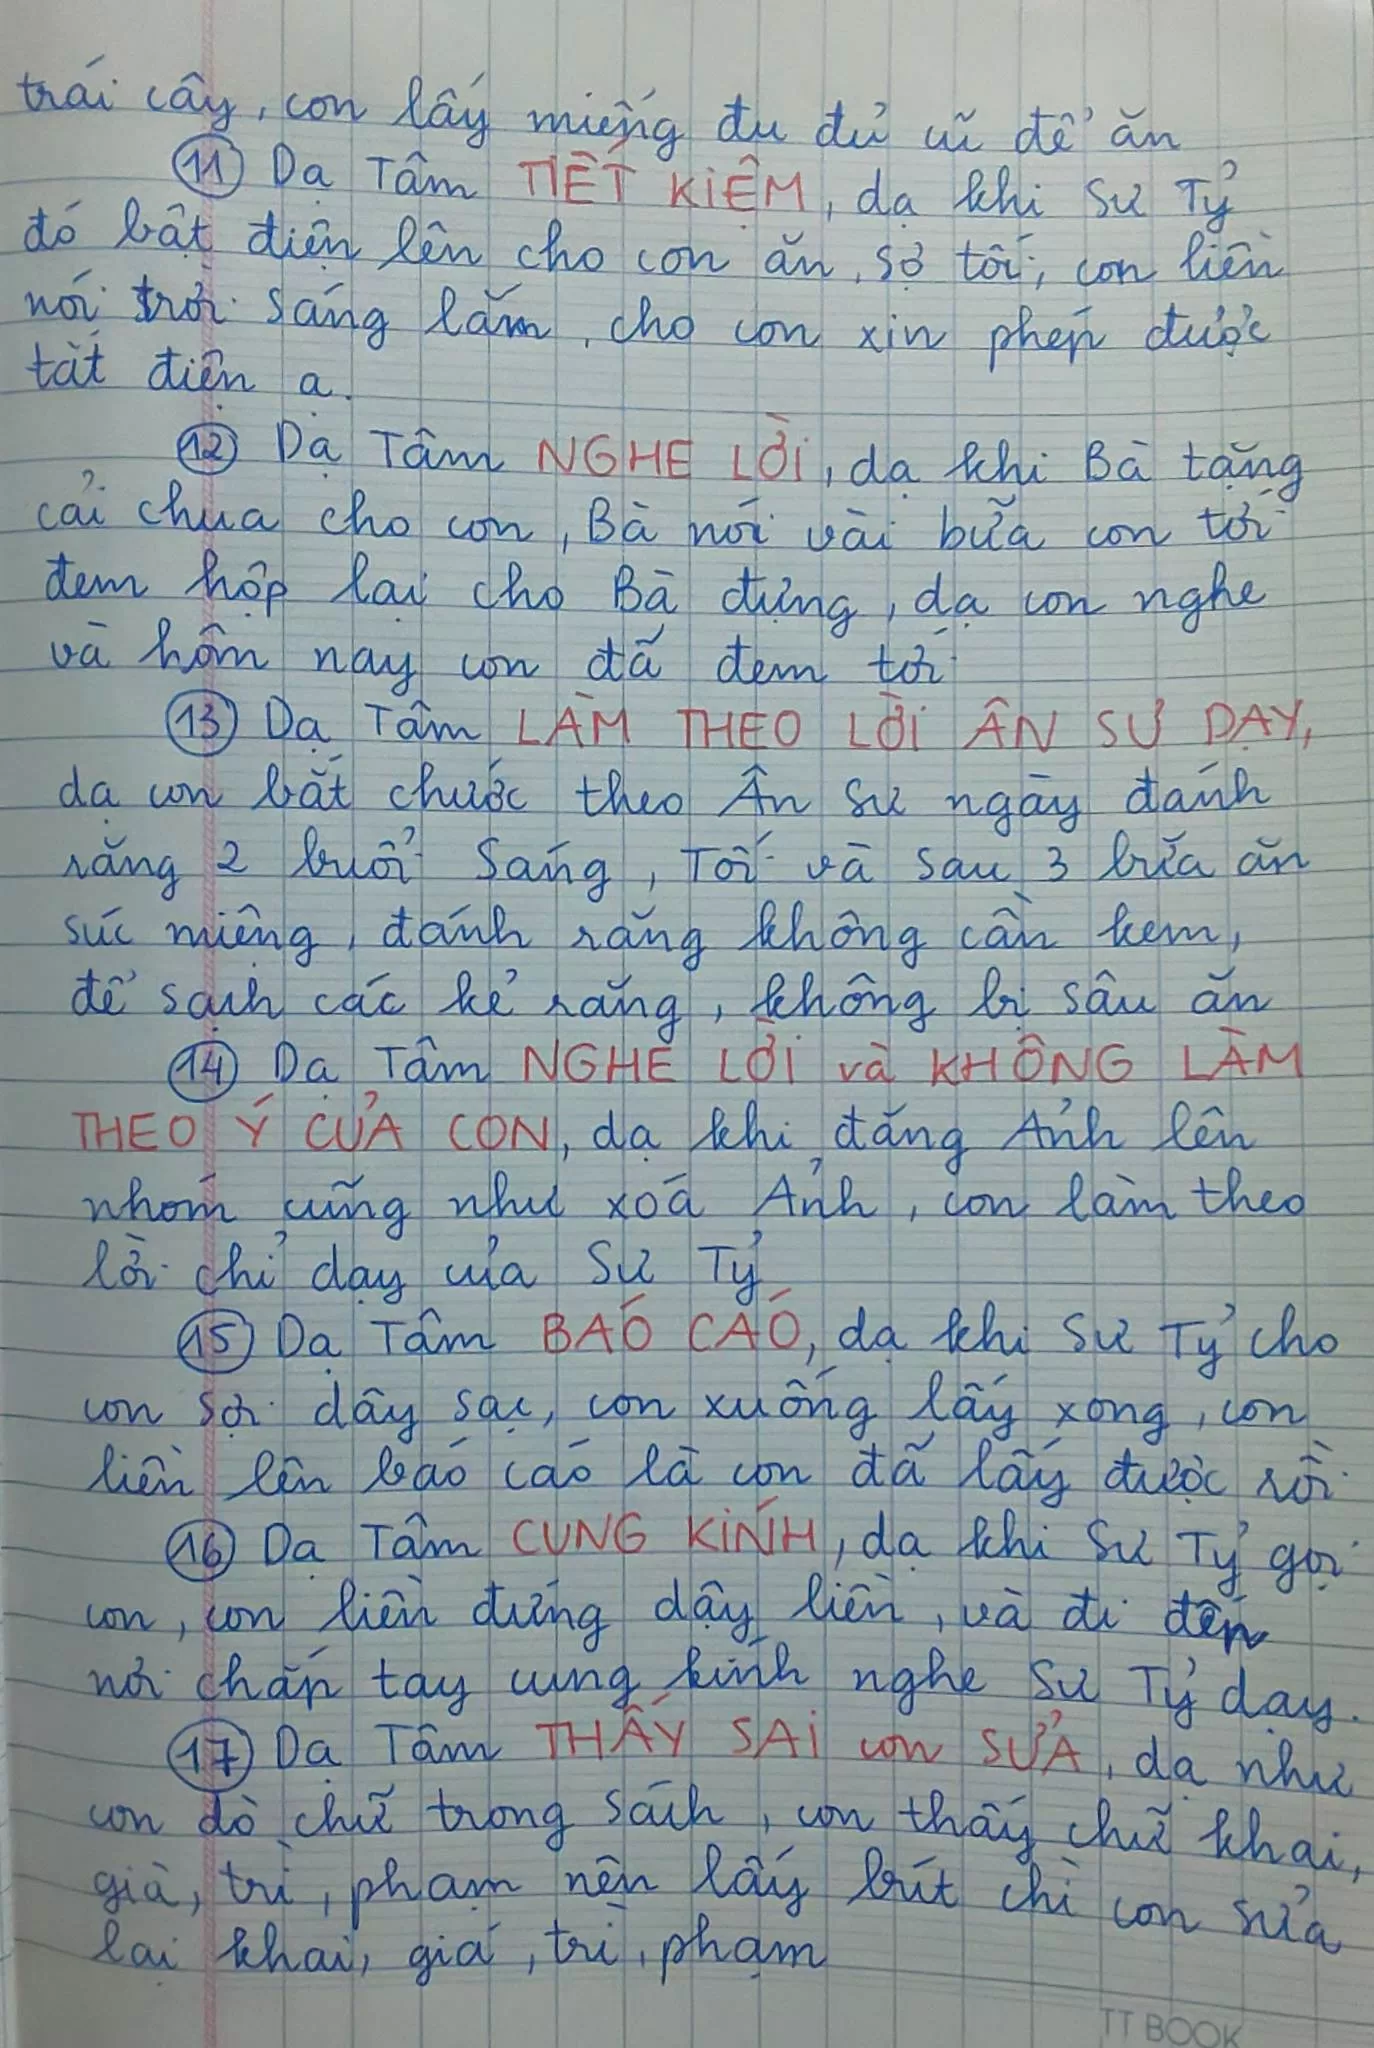 trái cây, con lấy miếng đu đủ cũ để ăn
(11) Dạ Tâm TIẾT KIỆM, dạ khi Sư Tỷ
đó bật điện lên cho con ăn, sợ tối, con liền
nói trời sáng lắm, cho con xin phép được
tắt điện ạ.
(12) Dạ Tâm NGHE LỜI, dạ khi Bà tặng
cải chua cho con, Bà nói vài bữa con tới
đem hộp lại cho Bà đựng, dạ con nghe
và hôm nay con đã đem tới
(13) Dạ Tâm LÀM THEO LỜI ÂN SƯ DẠY,
dạ con bắt chước theo Ân Sư ngày đánh
răng 2 buổi Sáng, Tối và sau 3 bữa ăn
súc miệng, đánh răng không cần kem,
để sạch các kẻ răng, không bị sâu ăn
(14) Dạ Tâm NGHE LỜI và KHÔNG LÀM
THEO Ý CỦA CON, dạ khi đăng Ảnh lên
nhóm cũng như xoá Ảnh, con làm theo
lời chỉ dạy của Sư Tỷ
(15) Dạ Tâm BÁO CÁO, dạ khi Sư Tỷ cho
con sợi dây sạc, con xuống lấy xong, con
liền lên báo cáo là con đã lấy được rồi
(16) Dạ Tâm CUNG KÍNH, dạ khi Sư Tỷ gọi
con, con liền đứng dậy liền, và đi đến
nơi chắp tay cung kính nghe Sư Tỷ dạy.
(17) Dạ Tâm THẤY SAI con SỬA, dạ như
con dò chữ trong sách, con thấy chữ khai,
già, trì, phạm nên lấy bút chì con sửa
lại khai, giá, trì, phạm
TT BOOK